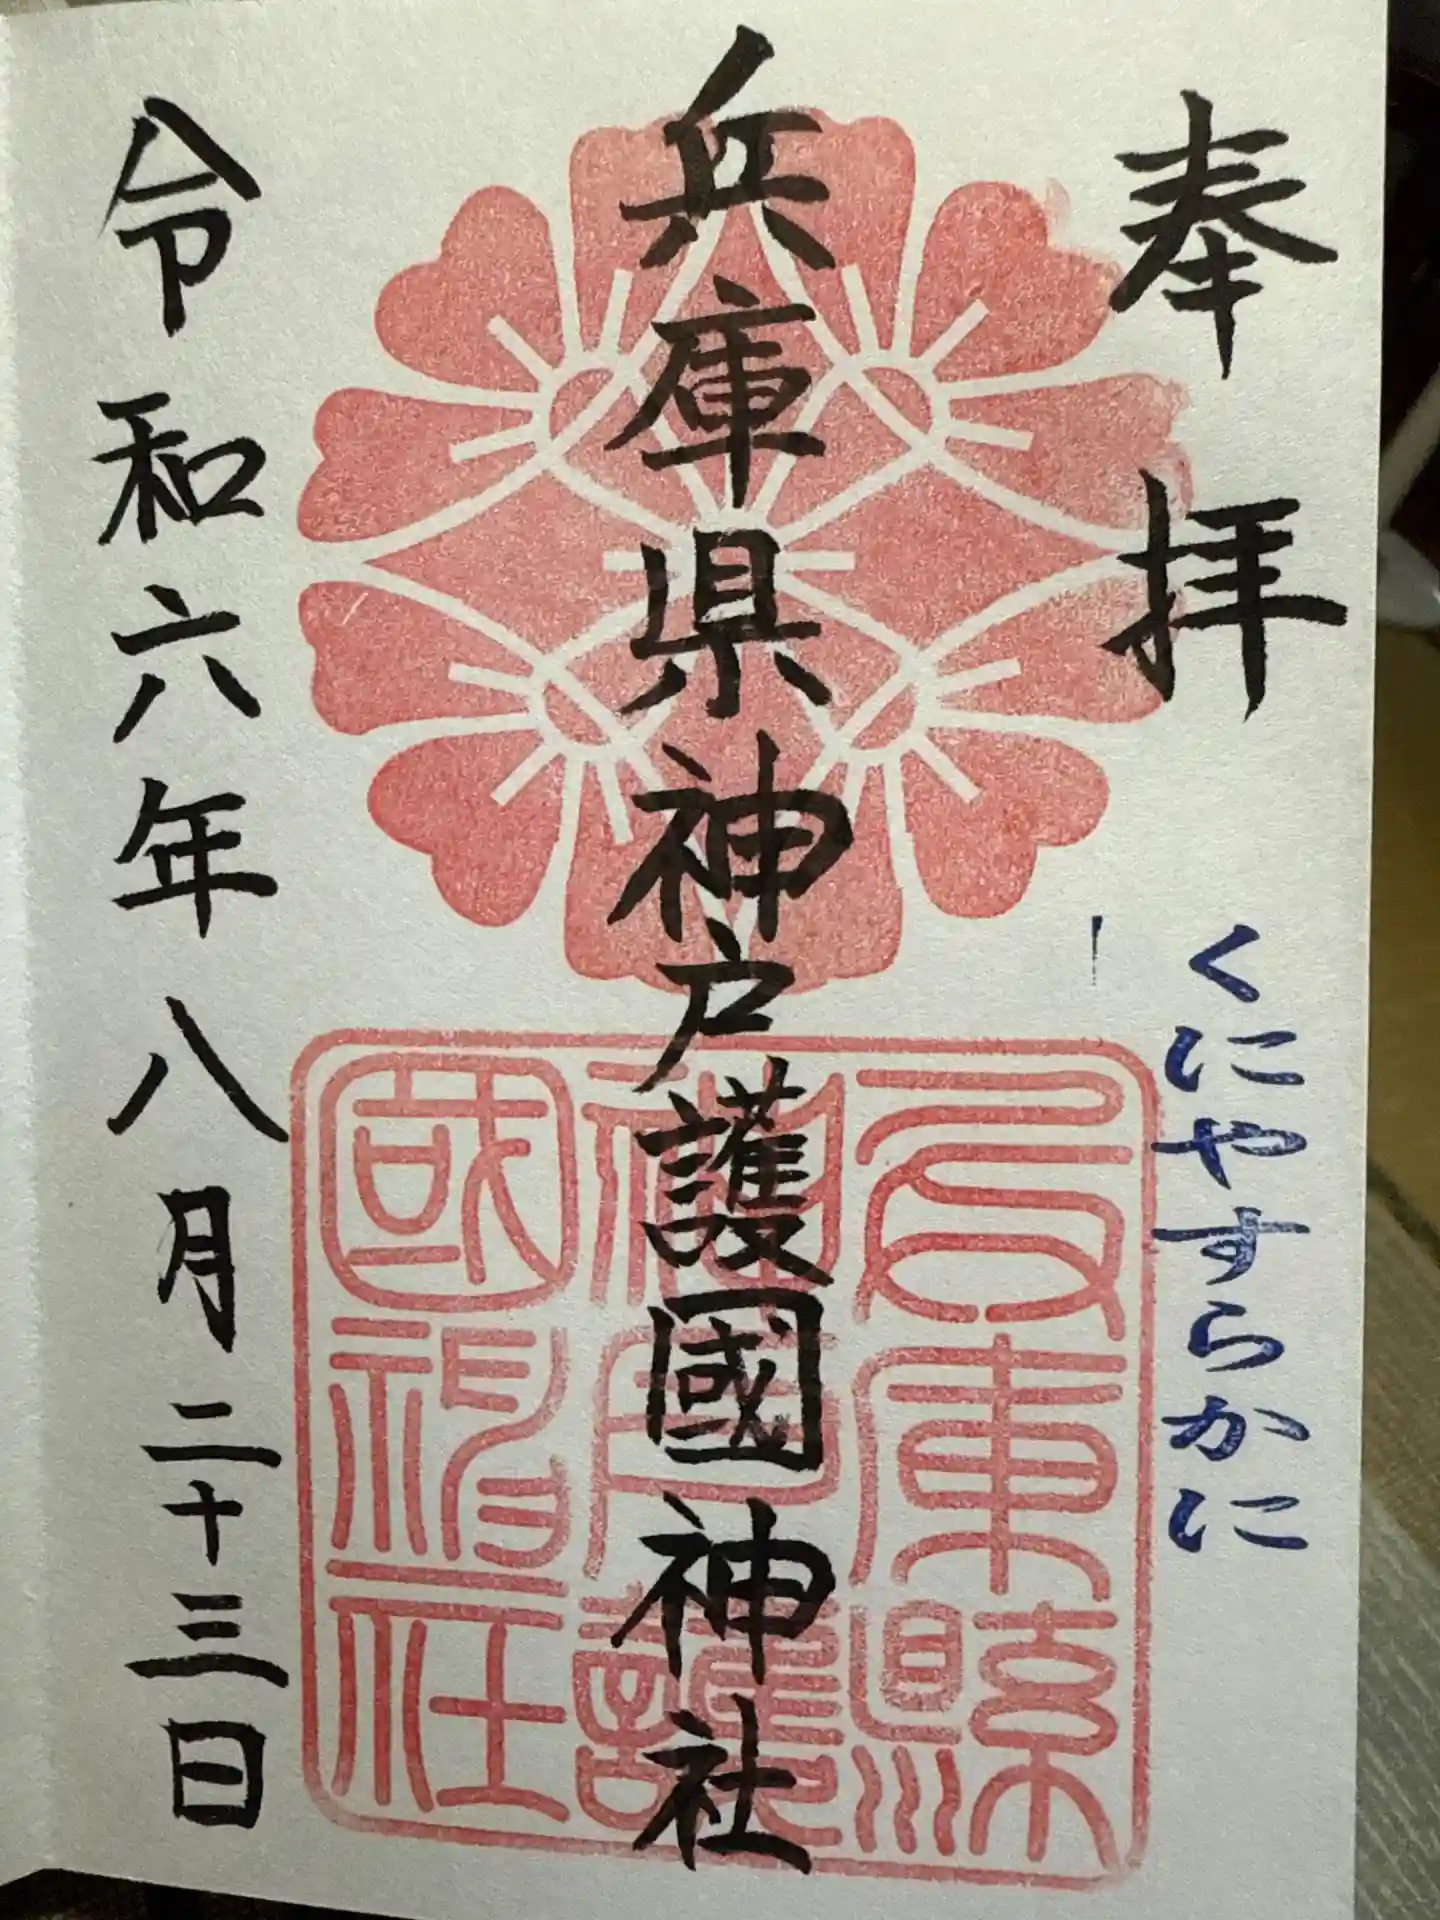 奉拝
くにやすらかに
兵庫県神戸護国神社
兵庫縣
神戸護
國神社
令和六年八月二十三日